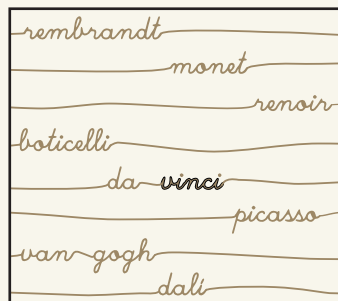 rembrandt
monet
renoir
boticelli
da vinci
picasso
van gogh
dalí